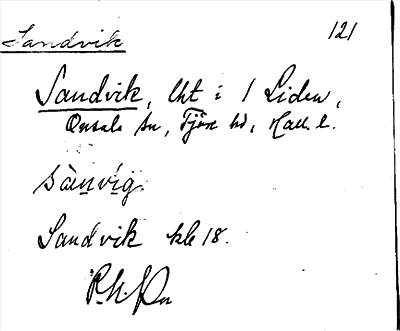 Sandvik 121
Sandvik, lht i 1 Liden,
Onsala sn, Fjäre hd, Hall. l.
sànvíg.
Sandvik kle 18.